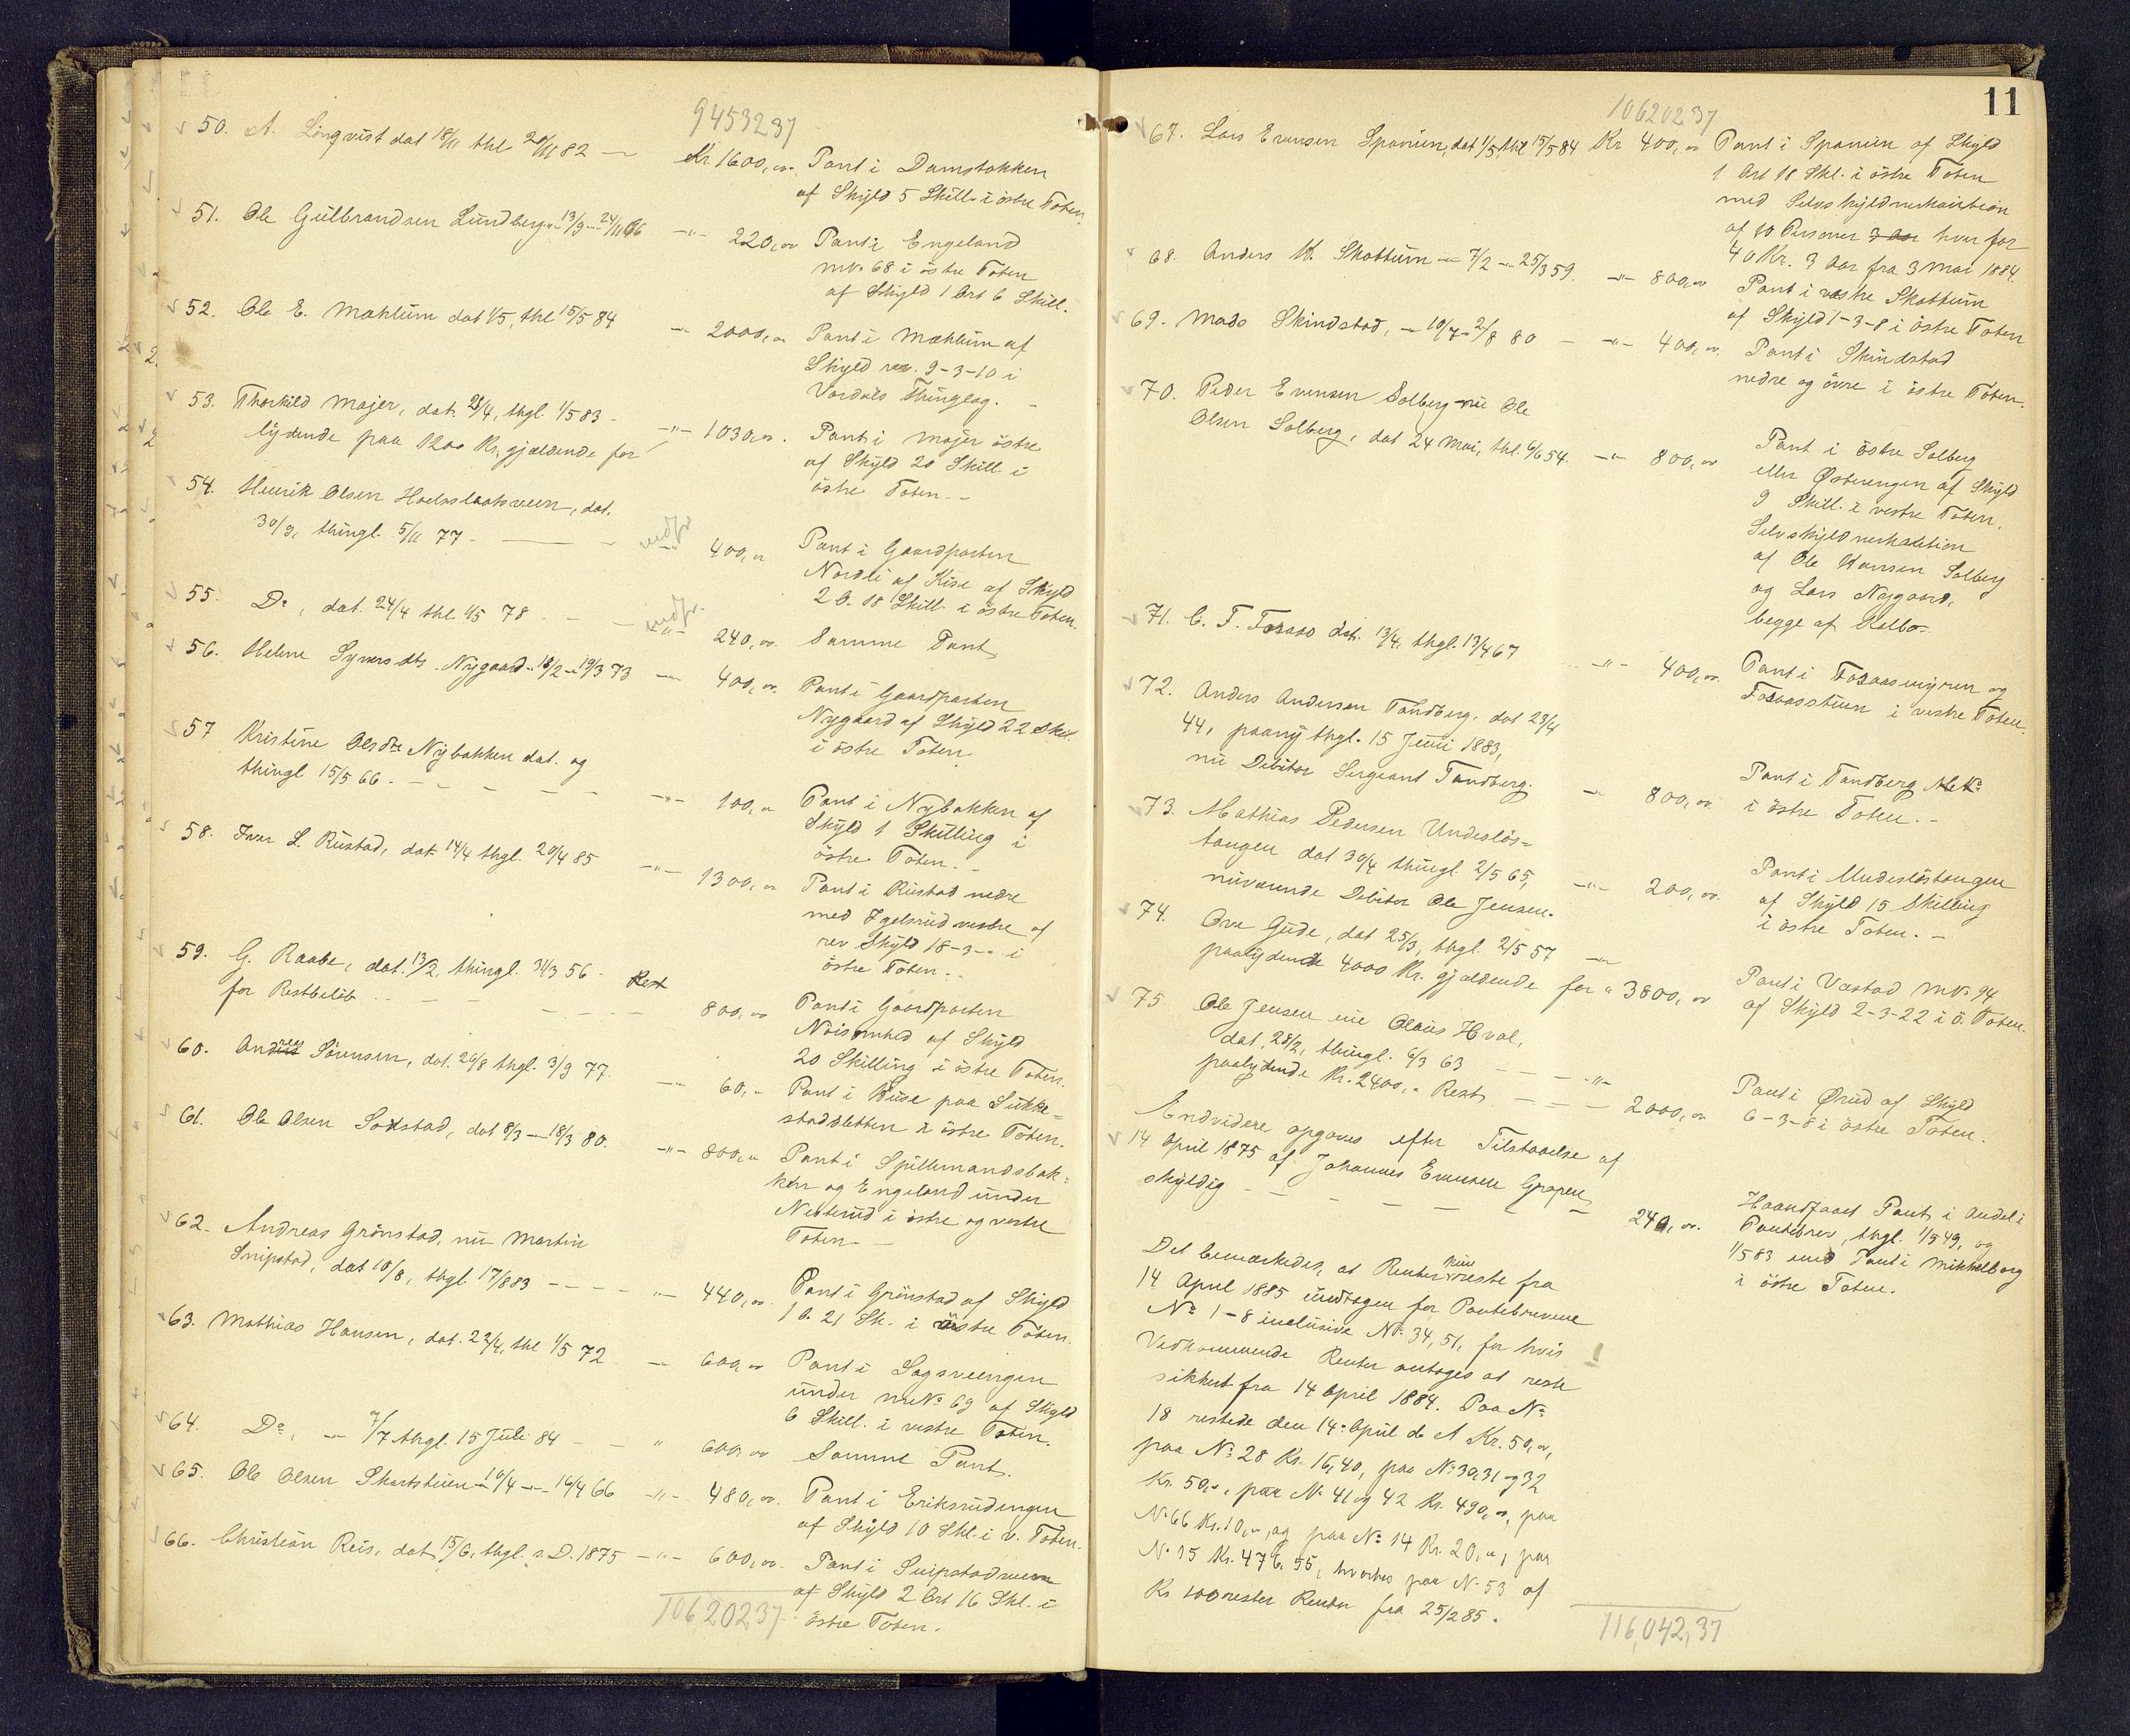 9453237
50. A. Lingvist dat 18/11 thl 20/11 82 — Kr 1600,00. Pant i Damstokken
af Skyld 5 Skill. i östre Toten.
51. Ole Gulbrandsen Lundberg 13/9 — 24/11 66 —"— 220,00 Pant i Engeland
mNo 68 i östre Toten
af Skyld 1 Ort 6 Skill.
52. Ole E. Mæhlum dat 1/5, thl 15/5 84 —"— 2000,00 Pant i Mæhlum af
Skyld rev. 9-3-10 i
Vardals Thinglag.
53. Thorkild Majer, dat. 28/4, thgl. 1/5 83 —
lydende paa 1200 Kr. gjældende for —"— 1030,00. Pant i Majer östre
af Skyld 20 Skill. i
östre Toten. —
54. Henrik Olsen Hoelsslaatsveen, dat.
30/9, thingl. 5/11 77 — —"— 400,00 Pant i Gaardparten
Nordli af Kise af Skyld
2 O. 18 Skill. i östre Toten.
55. Do, dat. 24/4 thl. 1/5 78 — —"— 240,00. Samme Pant
56. Helene Syversdts. Nygaard 18/2 — 19/3 73 —"— 400,00. Pant i Gaardparten
Nygaard af Skyld 22 Skill.
i östre Toten.
57 Kristine Olsdtr Nybakken dat. og
thingl 15/5 66 — —"— 100,00 Pant i Nybakken af
Skyld 1 Skilling i
östre Toten. —
58. Iver L. Rustad, dat 14/4 thgl. 20/4 85 —"— 1300,00 Pant i Rustad nedre
med Igelsrud vestre af
rev Skyld 18-3-- i
östre Toten. —
59. G. Raabe, dat. 13/2, thingl. 31/3 56 — Rest
for Restbeløb — 800,00 Pant i Gaardparten
Nöisomhed af Skyld
20 Skilling i östre Toten.
60. Andreas Sörensen, dat. 26/8 thgl. 3/9 77. —"— 60,— Pant i Huse paa Sukke=
stadsletten i östre Toten.
61. Ole Olsen Soxstad, dat 8/3 — 18/3 80. —"— 800,00 Pant i Spillemandsbak=
ken og Engeland under
Nederud i östre og vestre
Toten. —
62. Andreas Grönstad, nu Martin
Snipstad, dat 10/8, thgl. 17/8 83 — —"— 440,00. Pant i Grönstad af Skyld
1 O. 21 Sk. i östre Toten.
63. Mathias Hansen, dat. 22/4, thl 1/5 72 — 600,00 Pant i Sagsveengen
under mNo 69 af Skyld
6 Skill. i vestre Toten.
64. Do, — 7/7 thgl. 15 Juli 84 — " 600,00 Samme Pant.
65. Ole Olsen Skartstuen 10/4 — 16/4 66 —"— 480,00. Pant i Eriksrudengen
af Skyld 10 Skl. i v. Toten.
66. Christian Reis, dat 15/6, thgl. s. D. 1875 —"— 600,00. Pant i Snipstadveen
af Skyld 2 Ort 16 Skl. i
östre Toten.
10620237
11
10620237
67. Lars Evensen Spanien, dat 1/5 thl 15/5 84 Kr 400,00 Pant i Spanien af Skyld
1 Ort 18 Skl. i östre Toten
med Selvskyldnerkaution
af 10 Personer 3 Aar hver for
40 Kr. 3 Aar fra 3 Mai 1884.
68. Anders H. Skattum — 7/2 — 25/3 59. —"— 800,00 Pant i vestre Skattum
af Skyld 1-3-8 i östre Toten
69. Mads Skindstad, — 10/7 — 2/8 80 — —"— 400,00. Pant i Skindstad
nedre og övre i östre Toten.
70. Peder Evensen Solberg nu Ole
Olsen Solberg, dat 24 Mai, thl. 6/6 54. —"— 800,00 Pant i östre Solberg
eller Østerengen af Skyld
9 Skill. i vestre Toten,
Selvskyldnerkaution
af Ole Hansen Solberg
og Lars Nygaard,
begge af Kolbo.
71. C. T. Fosaas dat. 13/4, thgl. 13/4 67 —"— 400,00. Pant i Fosaasmyren og
Fosaasstuen i vestre Toten.
72. Anders Andersen Tandberg, dat 23/4
44, paany thgl. 15 Juni 1883,
nu Debitor Sergeant Tandberg. — 800,00. Pant i Tandberg
i östre Toten. —
73. Mathias Pedersen Undeslös=
tangen dat 30/4 thingl. 2/5 65,
nuværende Debitor Ole Jensen. —"— 200,00. Pant i Undeslöstangen
af Skyld 15 Skilling
i östre Toten. —
74. Ove Gude, dat 25/3, thgl. 2/5 57 —
paalydende 4000 Kr. gjældende for " 3800,00 Pant i Vastad mNo 94
af Skyld 2-3-22 i ö. Toten.
75 Ole Jensen nu Olaus Hval,
dat, 28/2, thingl. 6/3 63 — — —"—
paalydende Kr. 2400,— Rest — 2000,00 Pant i Ørud af Skyld
6-3-8 i östre Toten.
Endvidere opgaves efter Tilstaaelse af
14 April 1875 af Johannes Evensen Gropen
skyldig — — 240,00. Haandfaaet Pant i Andel i
Pantebrev, thgl. 1/5 49, og
1/5 83 med Pant i Mikkelborg
i östre Toten.
Det bemærkedes, at Renter kun reste fra
14 April 1885 undtagen for Pantebrevene
No 1-8 inclusive No 34, 51, for hvis
Vedkommende Renter antages at reste
sikkert fra 14 April 1884. Paa No
18 restede den 14. April d. A Kr. 50,00,
paa No 28 Kr. 16,40, paa No 30, 31 og 32
Kr. 50,00, paa No 41 og 42 Kr. 490,00, paa
No 66 Kr. 10,00, og paa No 14 Kr. 20,00, paa
No 15 Kr. 476, 55, hvorhos paa No 53 af
Kr 100 rester Renter fra 25/2 85.
116,042,37